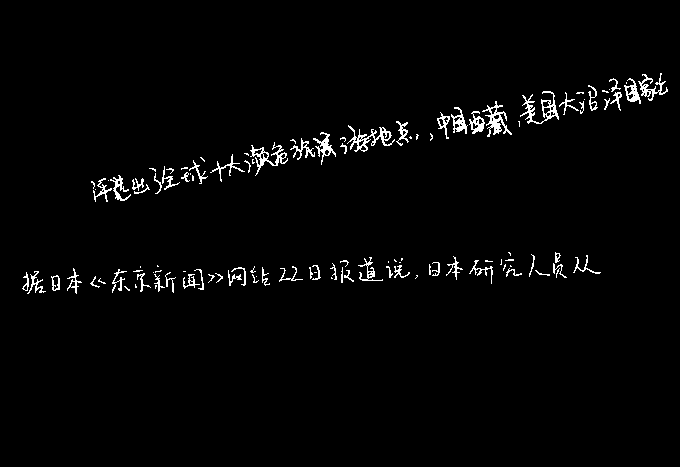 评选出了全球十大濒危旅游地点,,中国西藏,美国大沼泽国家
据日本《东京新闻》网站22日报道说,日本研究人员从